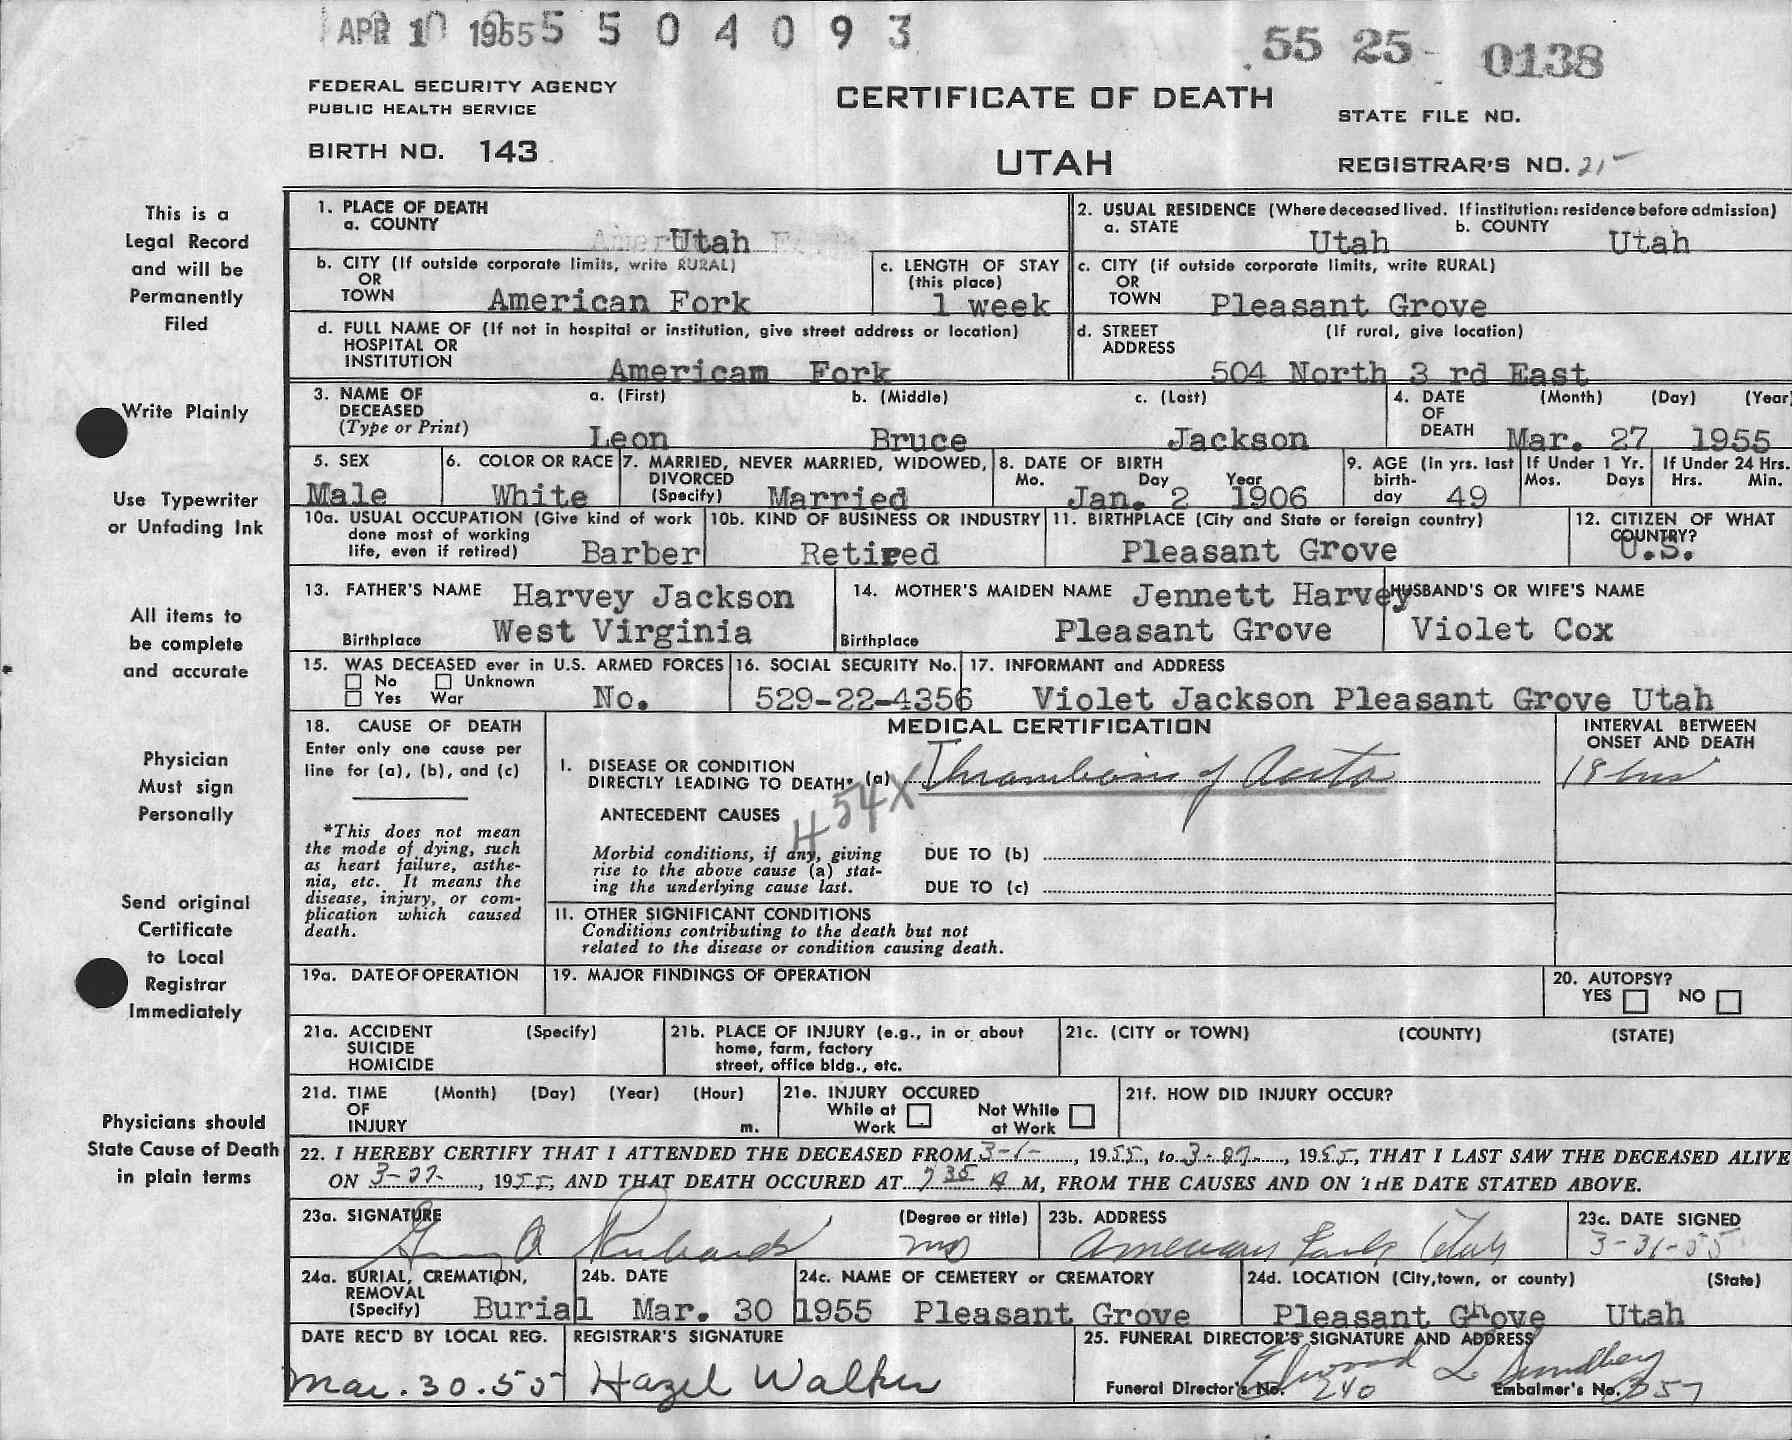 APR 10 1955 5 5 0 4 0 9 3
55 25 0138
FEDERAL SECURITY AGENCY
PUBLIC HEALTH SERVICE
CERTIFICATE OF DEATH
STATE FILE NO.
BIRTH NO. 143
UTAH
REGISTRAR'S NO. 215
This is a
Legal Record
and will be
Permanently
Filed
Write Plainly
Use Typewriter
or Unfading Ink
All items to
be complete
and accurate
Physician
Must sign
Personally
Send original
Certificate
to Local
Registrar
Immediately
Physicians should
State Cause of Death
in plain terms
1. PLACE OF DEATH
a. COUNTY Utah
2. USUAL RESIDENCE (Where deceased lived. If institution: residence before admission)
a. STATE Utah b. COUNTY Utah
b. CITY (If outside corporate limits, write RURAL)
OR
TOWN American Fork
c. LENGTH OF STAY
(this place)
1 week
c. CITY (if outside corporate limits, write RURAL)
OR
TOWN Pleasant Grove
d. FULL NAME OF (If not in hospital or institution, give street address or location)
HOSPITAL OR
INSTITUTION American Fork
d. STREET (If rural, give location)
ADDRESS
504 North 3 rd East
3. NAME OF a. (First) b. (Middle) c. (Last)
DECEASED
(Type or Print) Leon Bruce Jackson
4. DATE (Month) (Day) (Year)
OF
DEATH Mar. 27 1955
5. SEX
Male
6. COLOR OR RACE
White
7. MARRIED, NEVER MARRIED, WIDOWED,
DIVORCED
(Specify) Married
8. DATE OF BIRTH
Mo. Day Year
Jan. 2 1906
9. AGE (In yrs. last
birth-
day 49
If Under 1 Yr.
Mos. Days
If Under 24 Hrs.
Hrs. Min.
10a. USUAL OCCUPATION (Give kind of work
done most of working
life, even if retired) Barber
10b. KIND OF BUSINESS OR INDUSTRY
Retired
11. BIRTHPLACE (City and State or foreign country)
Pleasant Grove
12. CITIZEN OF WHAT
COUNTRY?
U.S.
13. FATHER'S NAME Harvey Jackson
Birthplace West Virginia
14. MOTHER'S MAIDEN NAME Jennett Harvey
Birthplace Pleasant Grove
HUSBAND'S OR WIFE'S NAME
Violet Cox
15. WAS DECEASED ever in U.S. ARMED FORCES
No Unknown
Yes War No.
16. SOCIAL SECURITY No.
529-22-4356
17. INFORMANT and ADDRESS
Violet Jackson Pleasant Grove Utah
18. CAUSE OF DEATH
Enter only one cause per
line for (a), (b), and (c)
*This does not mean
the mode of dying, such
as heart failure, asthe-
nia, etc. It means the
disease, injury, or com-
plication which caused
death.
MEDICAL CERTIFICATION
INTERVAL BETWEEN
ONSET AND DEATH
I. DISEASE OR CONDITION
DIRECTLY LEADING TO DEATH* (a) Thrombosis of Aorta 18 hrs
454X
ANTECEDENT CAUSES
Morbid conditions, if any, giving
rise to the above cause (a) stat-
ing the underlying cause last.
DUE TO (b)
DUE TO (c)
II. OTHER SIGNIFICANT CONDITIONS
Conditions contributing to the death but not
related to the disease or condition causing death.
19a. DATE OF OPERATION
19. MAJOR FINDINGS OF OPERATION
20. AUTOPSY?
YES NO
21a. ACCIDENT (Specify)
SUICIDE
HOMICIDE
21b. PLACE OF INJURY (e.g., in or about
home, farm, factory
street, office bldg., etc.
21c. (CITY or TOWN) (COUNTY) (STATE)
21d. TIME (Month) (Day) (Year) (Hour)
OF
INJURY m.
21e. INJURY OCCURED
While at Not While
Work at Work
21f. HOW DID INJURY OCCUR?
22. I HEREBY CERTIFY THAT I ATTENDED THE DECEASED FROM 3-1-, 1955, to 3-27-, 1955, THAT I LAST SAW THE DECEASED ALIVE
ON 3-27-, 1955, AND THAT DEATH OCCURED AT 7 35 A M, FROM THE CAUSES AND ON THE DATE STATED ABOVE.
23a. SIGNATURE (Degree or title)
Richards MD
23b. ADDRESS
American Fork Utah
23c. DATE SIGNED
3-31-55
24a. BURIAL, CREMATION,
REMOVAL
(Specify) Burial
24b. DATE
Mar. 30 1955
24c. NAME OF CEMETERY or CREMATORY
Pleasant Grove
24d. LOCATION (City, town, or county) (State)
Pleasant Grove Utah
DATE REC'D BY LOCAL REG.
Mar. 30. 55
REGISTRAR'S SIGNATURE
Hazel Walker
25. FUNERAL DIRECTOR'S SIGNATURE AND ADDRESS
Elwood L Sundberg
Funeral Director's No. 240 Embalmer's No. 357